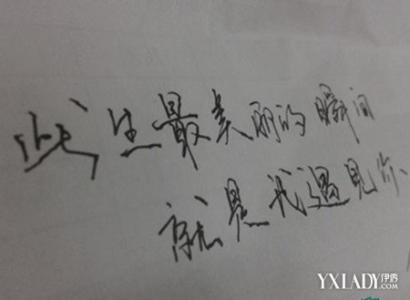 此生最美丽的瞬间
就是我遇见你
YXLADY伊秀
.com